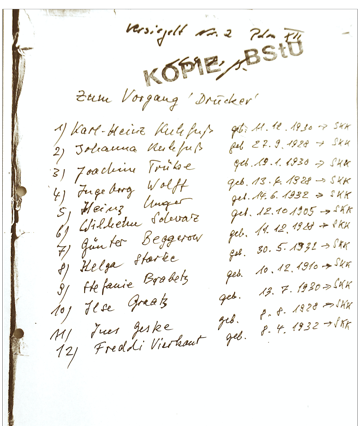 versiegelt Nr. 2 Pdm XII
KOPIE BStU
Zum Vorgang 'Drucker'
1) Karl-Heinz Kuhfuß geb. 11.12.1930 → SKK
2) Johanna Kuhfuß geb. 27.9.1929 → SKK
3) Joachim Trübe geb. 19.1.1930 → SKK
4) Ingeborg Wolff geb. 13.4.1928 → SKK
5) Heinz Unger geb. 14.6.1932 → SKK
6) Wilhelm Schwarz geb. 12.10.1905 → SKK
7) Günter Beggerow geb. 19.12.1929 → SKK
8) Helga Starke geb. 30.5.1932 → SKK
9) Stefanie Brabetz geb. 10.12.1910 → SKK
10) Ilse Graetz geb. 13.7.1930 → SKK
11) Ines Geske geb. 8.8.1928 → SKK
12) Freddi Vierhaut geb. 8.4.1932 → SKK